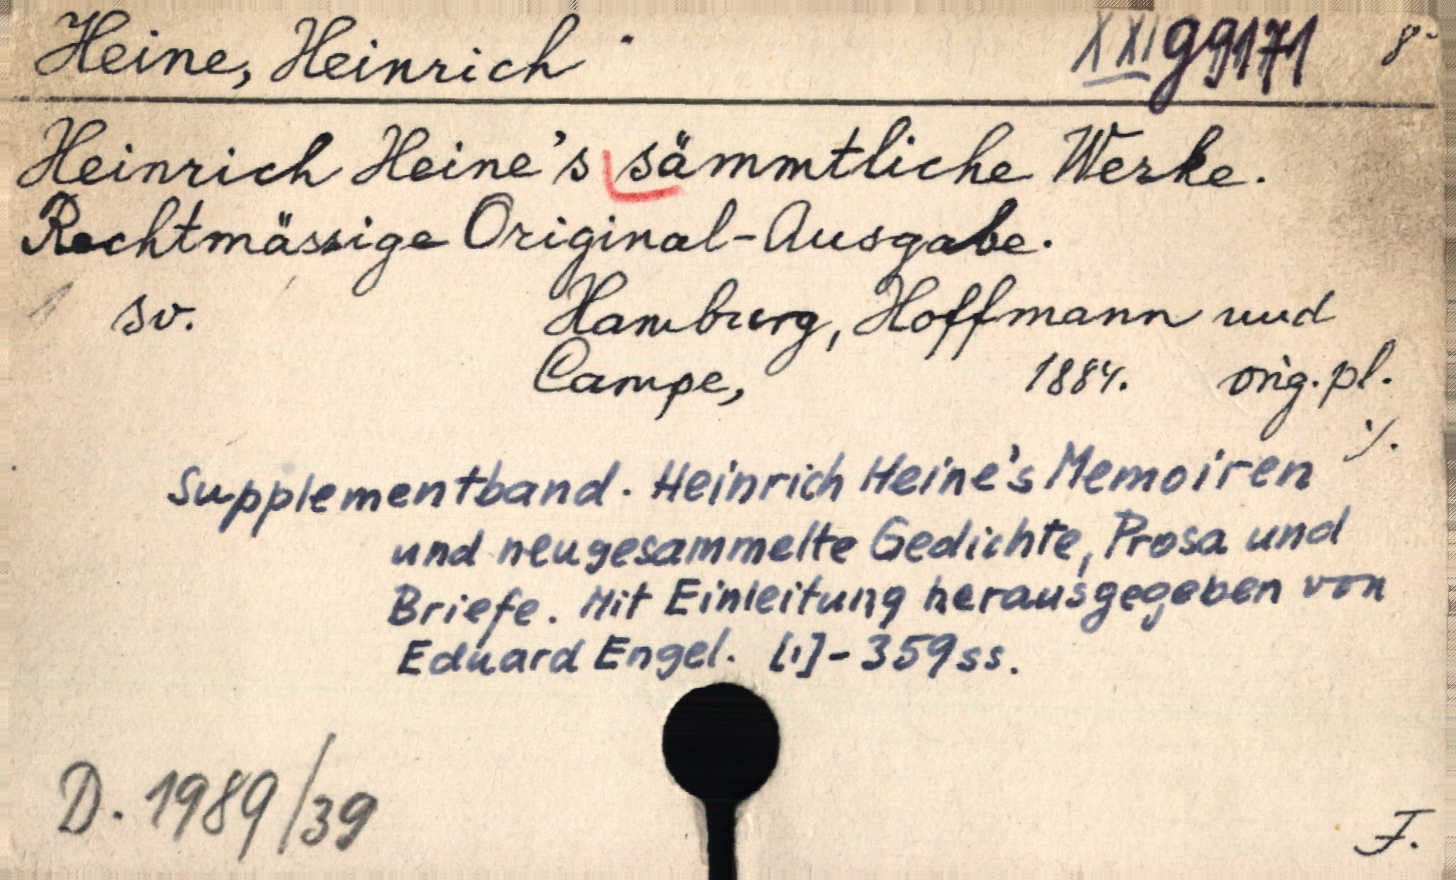 Heine, Heinrich XXI g 9171 8-
Heinrich Heine's sämmtliche Werke.
Rechtmässige Original-Ausgabe.
1 sv. Hamburg, Hoffmann und
Campe, 1884. orig. pl.
./.
Supplementband. Heinrich Heine's Memoiren
und neugesammelte Gedichte, Prosa und
Briefe. Mit Einleitung herausgegeben von
Eduard Engel. [1]-359 ss.
D. 1989/39
F.